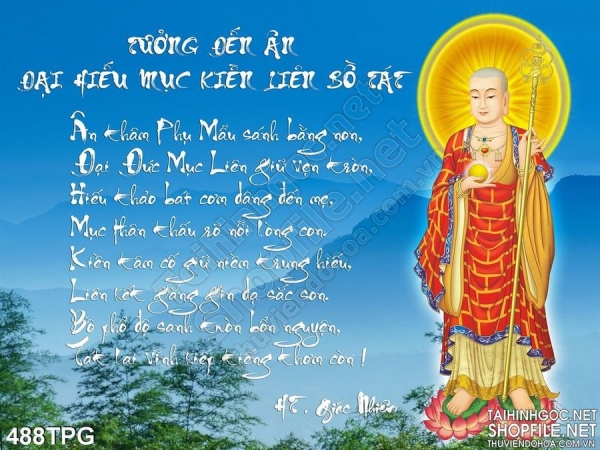 TƯỞNG ĐẾN ÂN
ĐẠI HIẾU MỤC KIỀN LIÊN BỒ TÁT
Ân thâm Phụ Mẫu sánh bằng non,
Đại Đức Mục Liên giữ vẹn tròn,
Hiếu thảo bát cơm dâng đến mẹ,
Mục thân thấu rõ nỗi lòng con.
Kiền tâm cố giữ niềm trung hiếu,
Liên kết gắng gìn dạ sắc son.
Bồ phổ độ sanh tròn bổn nguyện,
Tát lai vĩnh kiếp tiếng thơm còn!
HT. Giác Nhiên
488TPG
TAIHINHGOC.NET
SHOPFILE.NET
THUVIENDOHOA.COM.VN